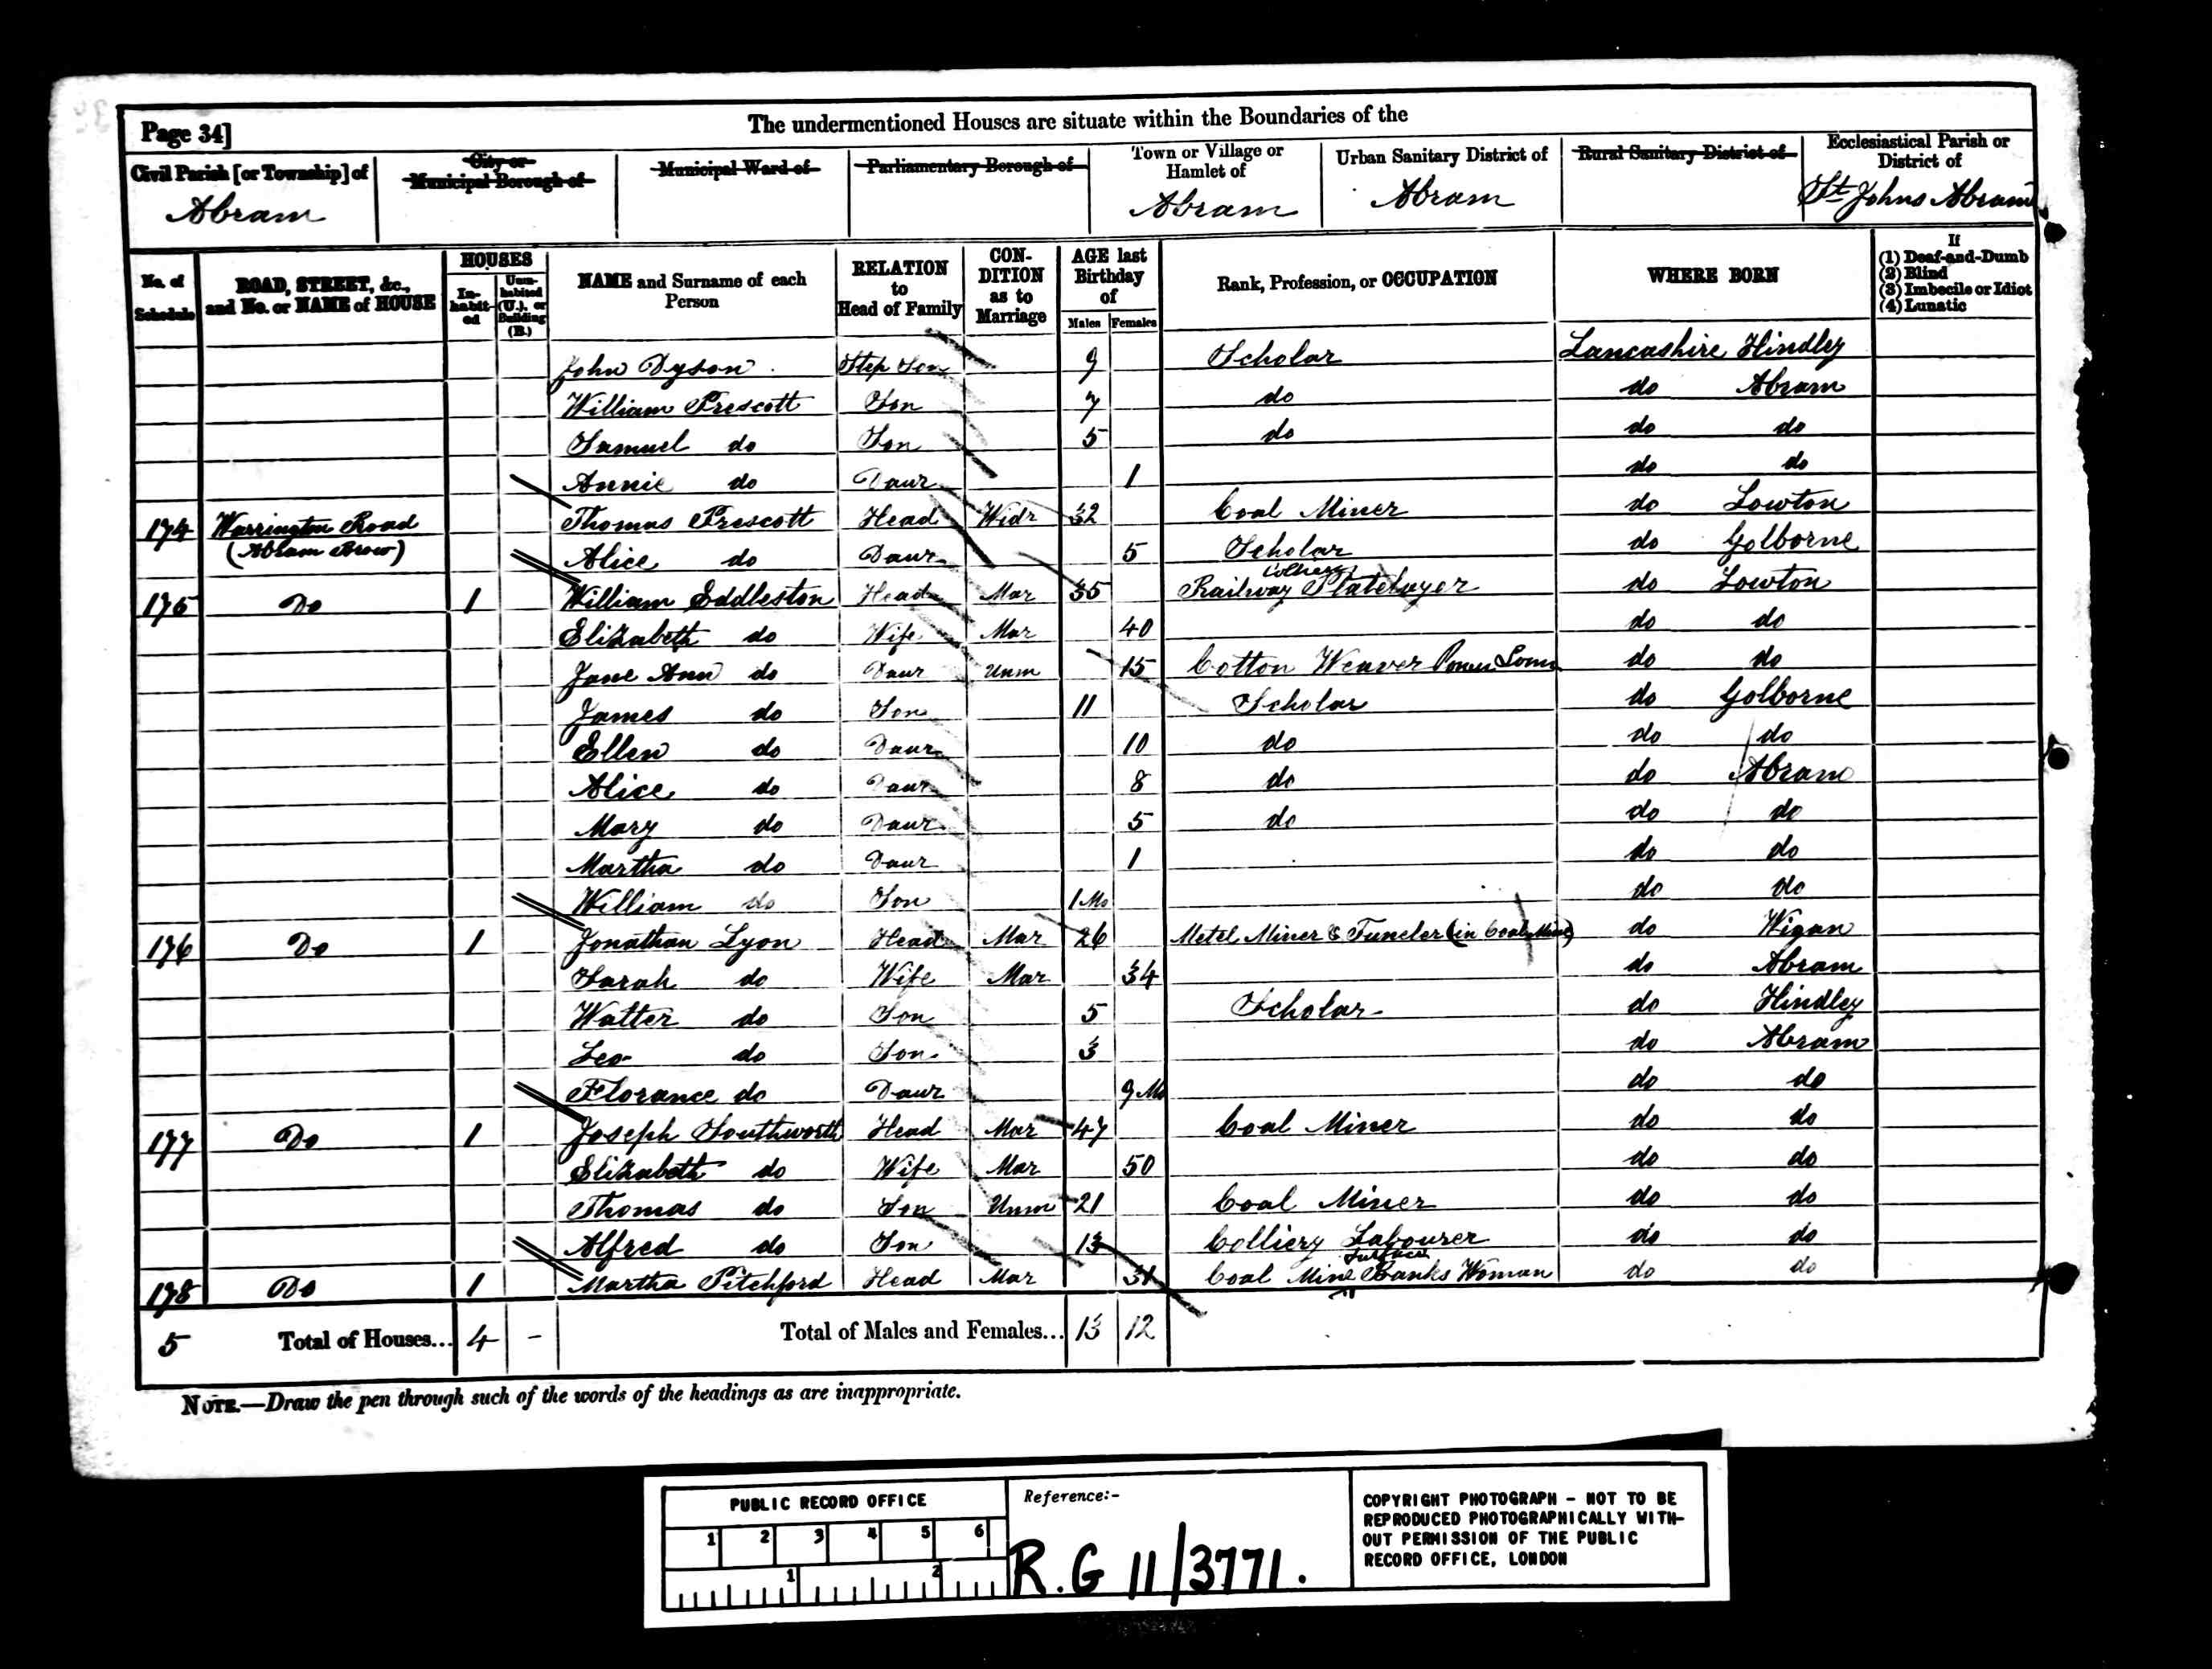 The undermentioned Houses are situate within the Boundaries of the
Page 34]
Civil Parish [or Township] of
Abram
City or
Municipal Borough of
Municipal Ward of
Parliamentary Borough of
Town or Village or
Hamlet of
Abram
Urban Sanitary District of
Abram
Rural Sanitary District of
Ecclesiastical Parish or
District of
St Johns Abram
No. of
Schedule
ROAD, STREET, &c.,
and No. or NAME of HOUSE
HOUSES
In-
habit-
ed
Unin-
habited
(U.), or
Building
(B.)
NAME and Surname of each
Person
RELATION
to
Head of Family
CON-
DITION
as to
Marriage
AGE last
Birthday
of
Males Females
Rank, Profession, or OCCUPATION
WHERE BORN
If
(1) Deaf-and-Dumb
(2) Blind
(3) Imbecile or Idiot
(4) Lunatic
John Dyson Step Son 9 Scholar Lancashire Hindley
William Prescott Son 7 do do Abram
Samuel do Son 5 do do do
Annie do Daur 1 do do
174 Warrington Road Thomas Prescott Head Widr 32 Coal Miner do Lowton
(Abram Brow) Alice do Daur 5 Scholar do Golborne
Colliery
175 Do 1 William Eddleston Head Mar 35 Railway Platelayer do Lowton
Elizabeth do Wife Mar 40 do do
Jane Ann do Daur Unm 15 Cotton Weaver Power Loom do do
James do Son 11 Scholar do Golborne
Ellen do Daur 10 do do do
Alice do Daur 8 do do Abram
Mary do Daur 5 do do do
Martha do Daur 1 do do
William do Son 1 Mo do do
176 Do 1 Jonathan Lyon Head Mar 26 Metel Miner & Tuneler (in Coal Mine) do Wigan
Sarah do Wife Mar 34 do Abram
Walter do Son 5 Scholar do Hindley
Leo do Son 3 do Abram
Florance do Daur 9 Mo do do
177 Do 1 Joseph Southworth Head Mar 47 Coal Miner do do
Elizabeth do Wife Mar 50 do do
Thomas do Son Unm 21 Coal Miner do do
Alfred do Son 13 Colliery Labourer do do
Surface
178 Do 1 Martha Pitchford Head Mar 31 Coal Mine Banks Woman do do
5 Total of Houses... 4 – Total of Males and Females... 13 12
NOTE.—Draw the pen through such of the words of the headings as are inappropriate.
PUBLIC RECORD OFFICE
1 2 3 4 5 6
1 2
Reference:-
R.G 11/3771.
COPYRIGHT PHOTOGRAPH - NOT TO BE
REPRODUCED PHOTOGRAPHICALLY WITH-
OUT PERMISSION OF THE PUBLIC
RECORD OFFICE, LONDON